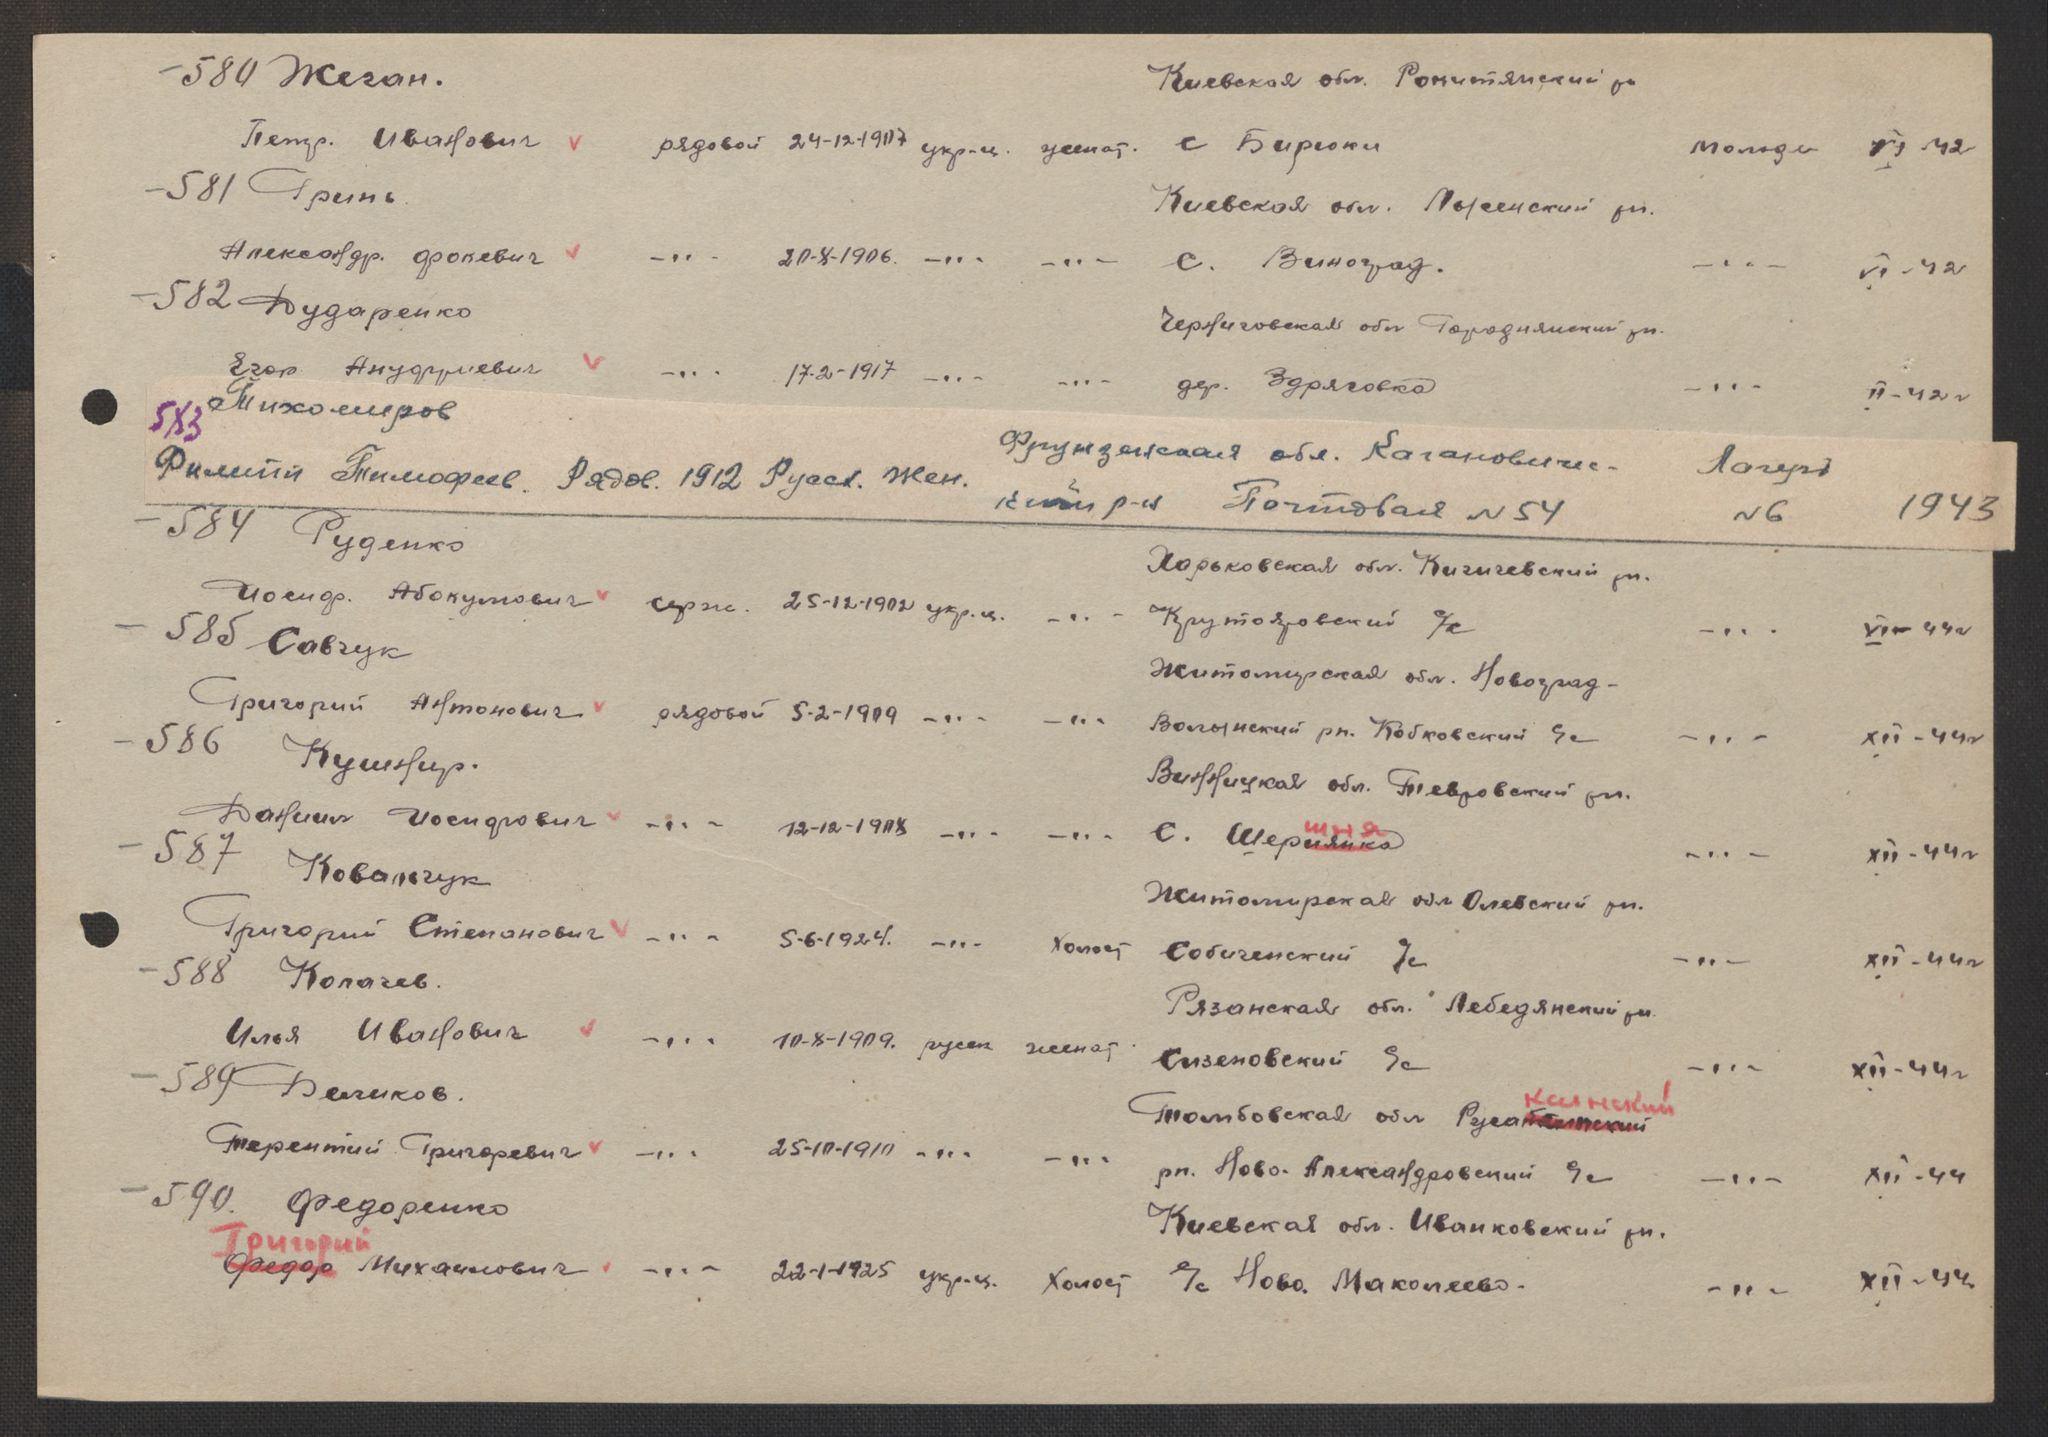 580 Жеган. Киевская обл. Ракитянский рн
Петр. Иванович v рядовой 24-12-1907 укр-ц. женат. с Бирюки Молоде VI-42
581 Гринь. Киевская обл. Лысенский рн.
Александр. Фокевич v -"- 20-X-1906. -"- -"- с. Виноград. -"- VI-42
582 Дударенко Черниговская обл Городнянский рн.
Егор Ануфриевич v -"- 17-2-1917 -"- -"- дер. Здряговка -"- II-42г
583 Тихомиров Фрунзенская обл. Кагановичес-
Филипп Тимофеев. Рядов. 1912 Русск. Жен. кий р-н Почтовая N54 Лагерь N6 1943
584 Руденко Харьковская обл. Кигичевский рн.
Иосиф. Абокумович v серж. 25-12-1902 укр.ц. -"- Крутояровский с/с -"- 44г
585 Савчук Житомирская обл. Новоград-
Григорий Антонович v рядовой 5-2-1909 -"- -"- Волынский рн. Кобковский с/с -"- XII-44г
586 Кушнир. Винницкая обл. Тевровский рн.
Даниил Иосифович v -"- 12-12-1908 -"- -"- с. Шершня -"- XII-44г
587 Ковальчук Житомирская обл Олевский рн.
Григорий Степанович v -"- 5-6-1924. -"- Холост Собиченский с/с -"- XII-44г
588 Колачев. Рязанская обл. Лебедянский рн.
Илья Иванович v -"- 10-X-1909. русск женат Сизеновский с/с -"- XII-44г
589 Беликов. Тамбовская обл Русанский
Терентий Григоревич v -"- 25-10-1910 -"- -"- рн. Ново-Александровский с/с -"- XII-44
590. Федоренко Киевская обл. Иванковский рн.
Григорий
Федор Михаилович -"- 22-1-1925 укр-ц. Холост с/с Ново. Маколеево. -"- XII-44